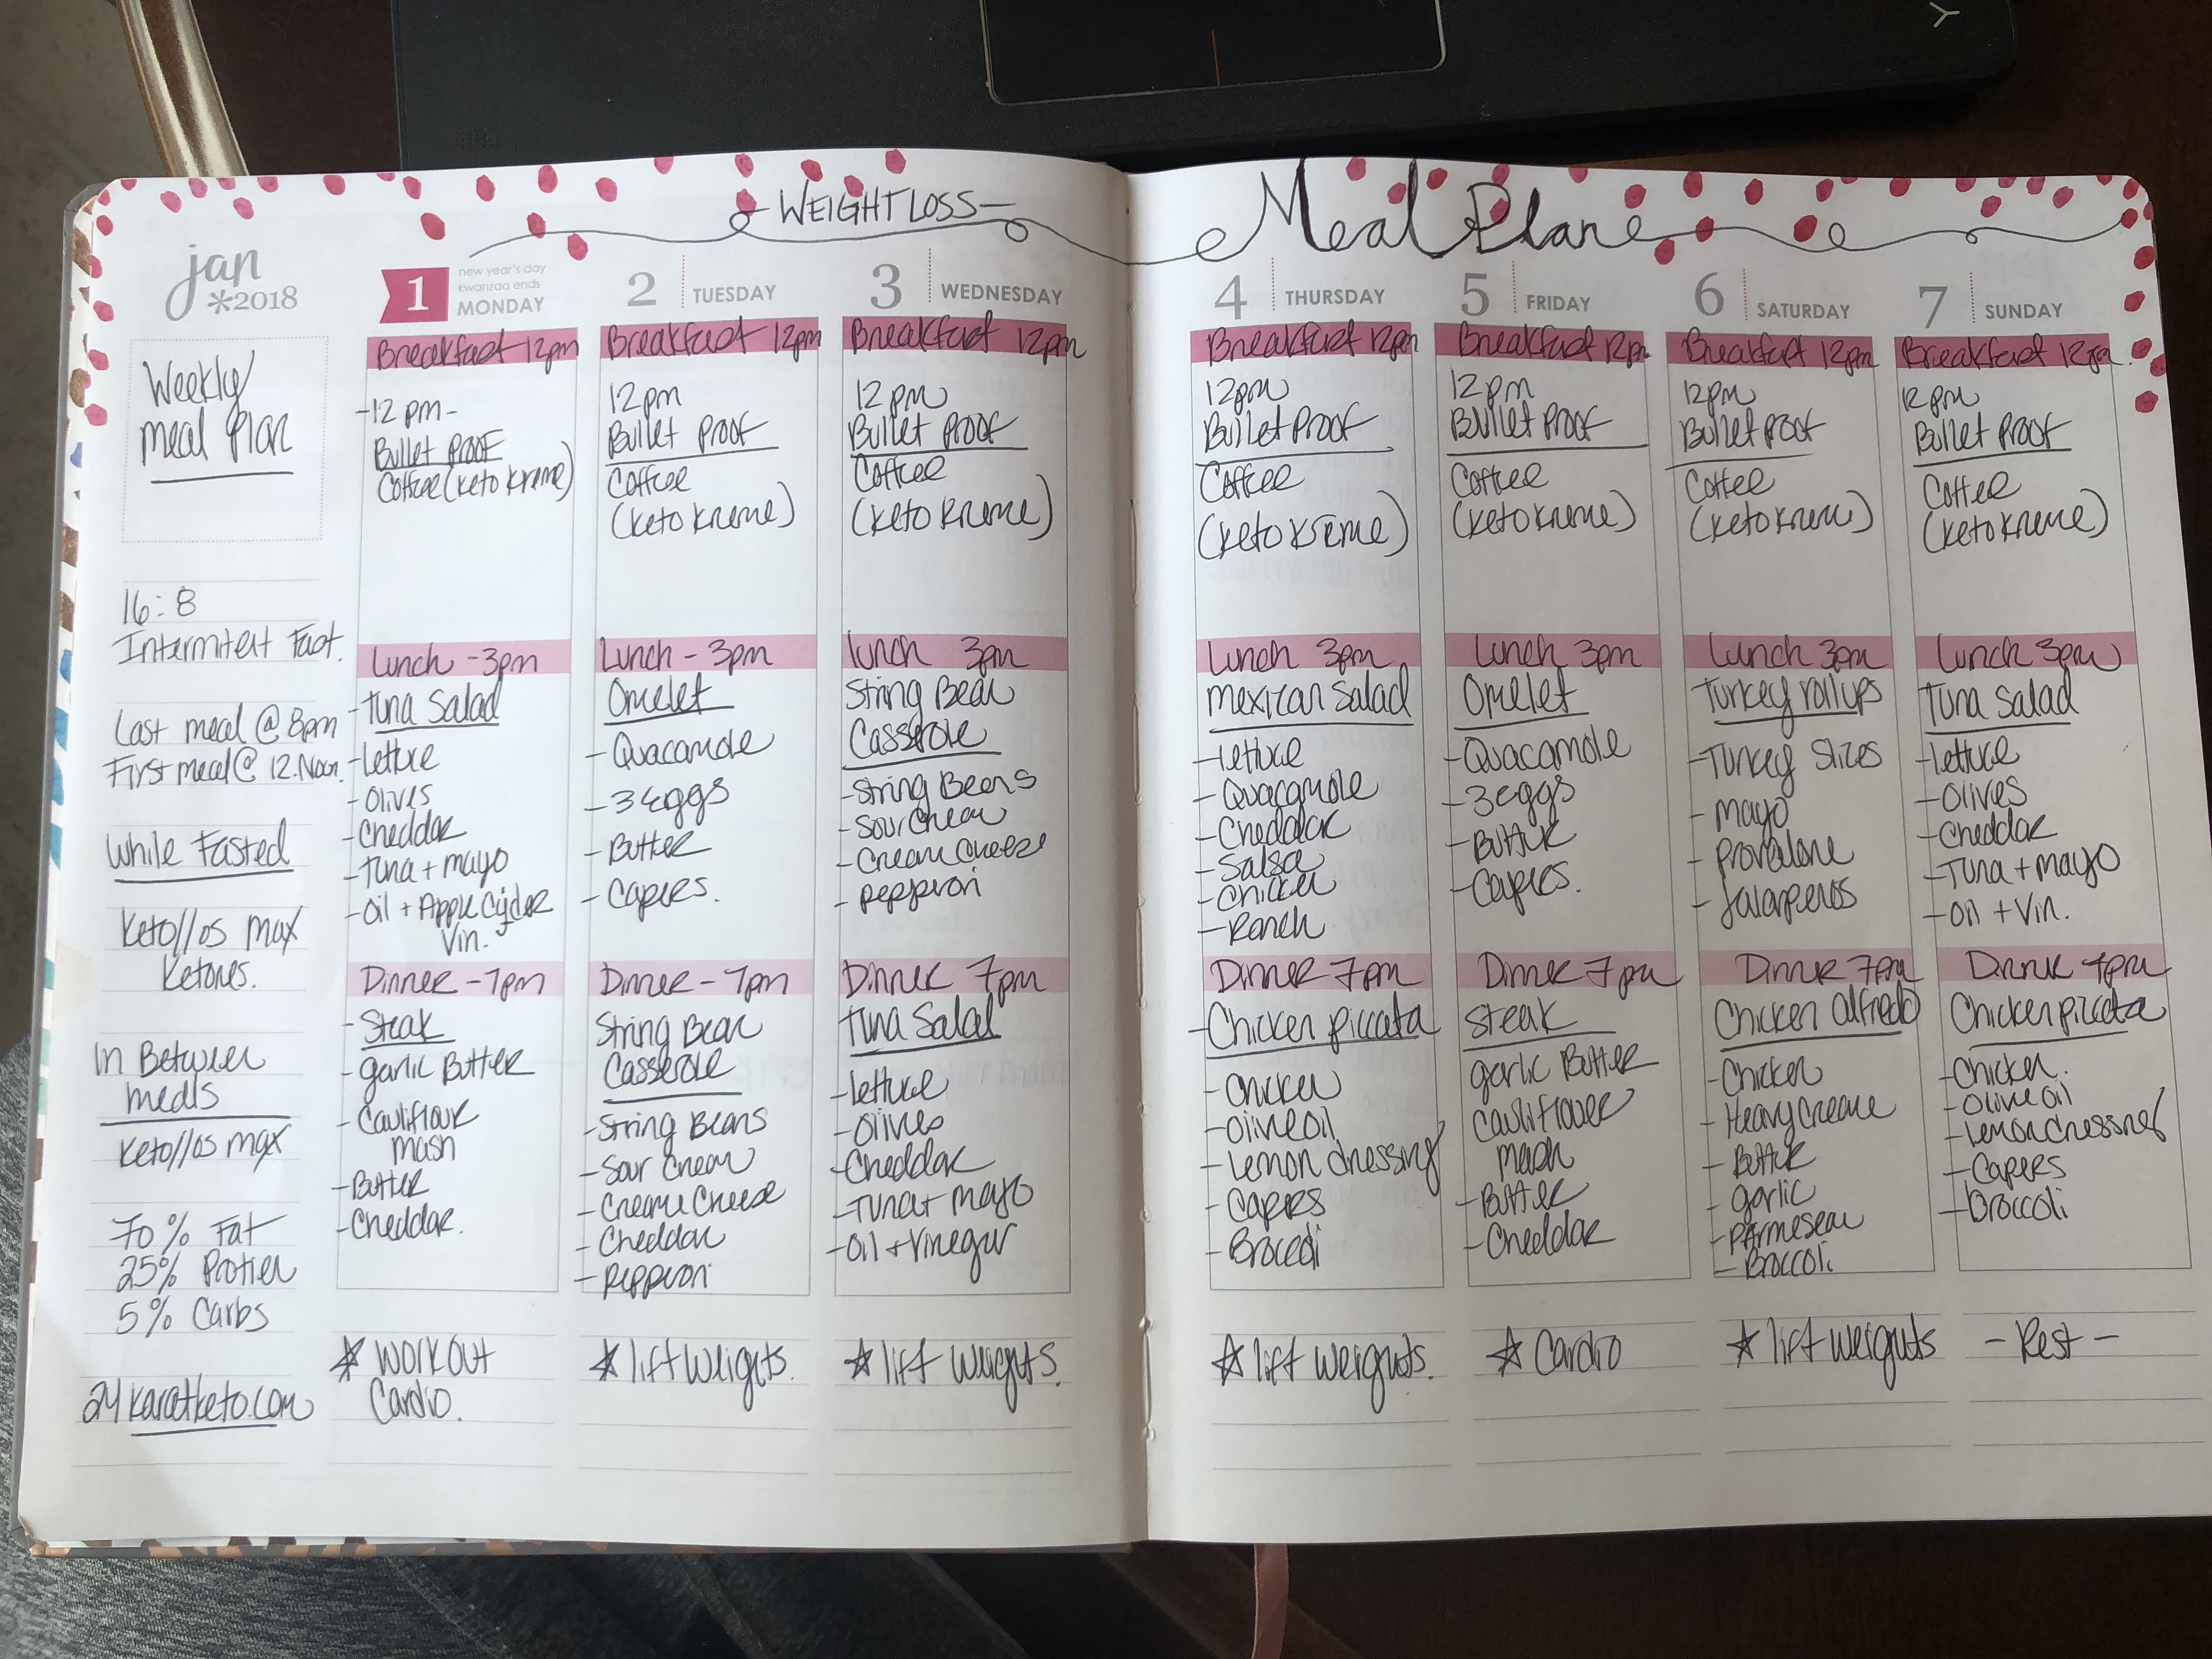 -WEIGHT LOSS-
Meal Plan
jan
*2018
Weekly
meal Plan
16:8
Intermitent Fast.
Last meal @ 8pm
First meal @ 12. Noon.
While Fasted
Keto//os max
Ketones.
In Between
meals
Keto//os max
70% Fat
25% Protien
5% Carbs
24karatketo.com
1
new year's day
kwanzaa ends
MONDAY
Breakfast 12pm
-12 pm-
Bullet Proof
Coffee (keto Kreme)
Lunch - 3pm
- Tuna Salad
- lettuce
- Olives
- Cheddar
- Tuna + mayo
- Oil + Apple Cyder
Vin.
Dinner - 7pm
- Steak
- garlic Butter
- Cauliflour
mash
- Butter
- Cheddar.
* WORKOUT
Cardio.
2
TUESDAY
Breakfast 12pm
12pm
Bullet Proof
Coffee
(keto Kreme)
Lunch - 3pm
Omelet
- Quacamole
- 3 eggs
- Butter
- Capers.
Dinner - 7pm
String Bean
Casserole
- String Beans
- Sour Cream
- Creame Cheese
- Cheddar
- Pepperoni
* lift Weights.
3
WEDNESDAY
Breakfast 12pm
12pm
Bullet Proof
Coffee
(Keto Kreme)
lunch 3pm
String Bean
Casserole
- String Beans
- Sour Cream
- Cream Cheese
- Pepperoni
Dinner 7pm
Tuna Salad
- lettuce
- Olives
- Cheddar
- Tuna + mayo
- Oil + Vinegar
* lift weights.
4
THURSDAY
Breakfast 12pm
12pm
Bullet Proof
Coffee
(keto Kreme)
Lunch 3pm
Mexican Salad
- lettuce
- Quacamole
- Cheddar
- Salsa
- Chicken
- Ranch
Dinner 7pm
- Chicken piccata
- Chicken
- Olive oil
- Lemon dressing
- Capers
- Broccoli
* lift weights.
5
FRIDAY
Breakfast 12pm
12pm
Bullet Proof
Coffee
(Keto Kreme)
Lunch 3pm
Omelet
- Quacamole
- 3 eggs
- Butter
- Capers.
Dinner 7pm
Steak
garlic Butter
Cauliflower
mash
- Butter
- Cheddar
* Cardio
6
SATURDAY
Breakfast 12pm
12pm
Bullet Proof
Coffee
(Keto Kreme)
Lunch 3pm
Turkey rollups
- Turkey Slices
- mayo
- Provolone
- Jalapenos
Dinner 7pm
Chicken alfredo
- Chicken
- Heavy Creame
- Butter
- garlic
- Parmesean
- Broccoli
* lift weights
7
SUNDAY
Breakfast 12pm.
12pm
Bullet Proof
Coffee
(Keto Kreme)
Lunch 3pm
Tuna Salad
- lettuce
- Olives
- Cheddar
- Tuna + mayo
- Oil + Vin.
Dinner 7pm
Chicken piccata
- Chicken.
- Olive oil
- Lemon dressing
- Capers
- broccoli
- Rest -